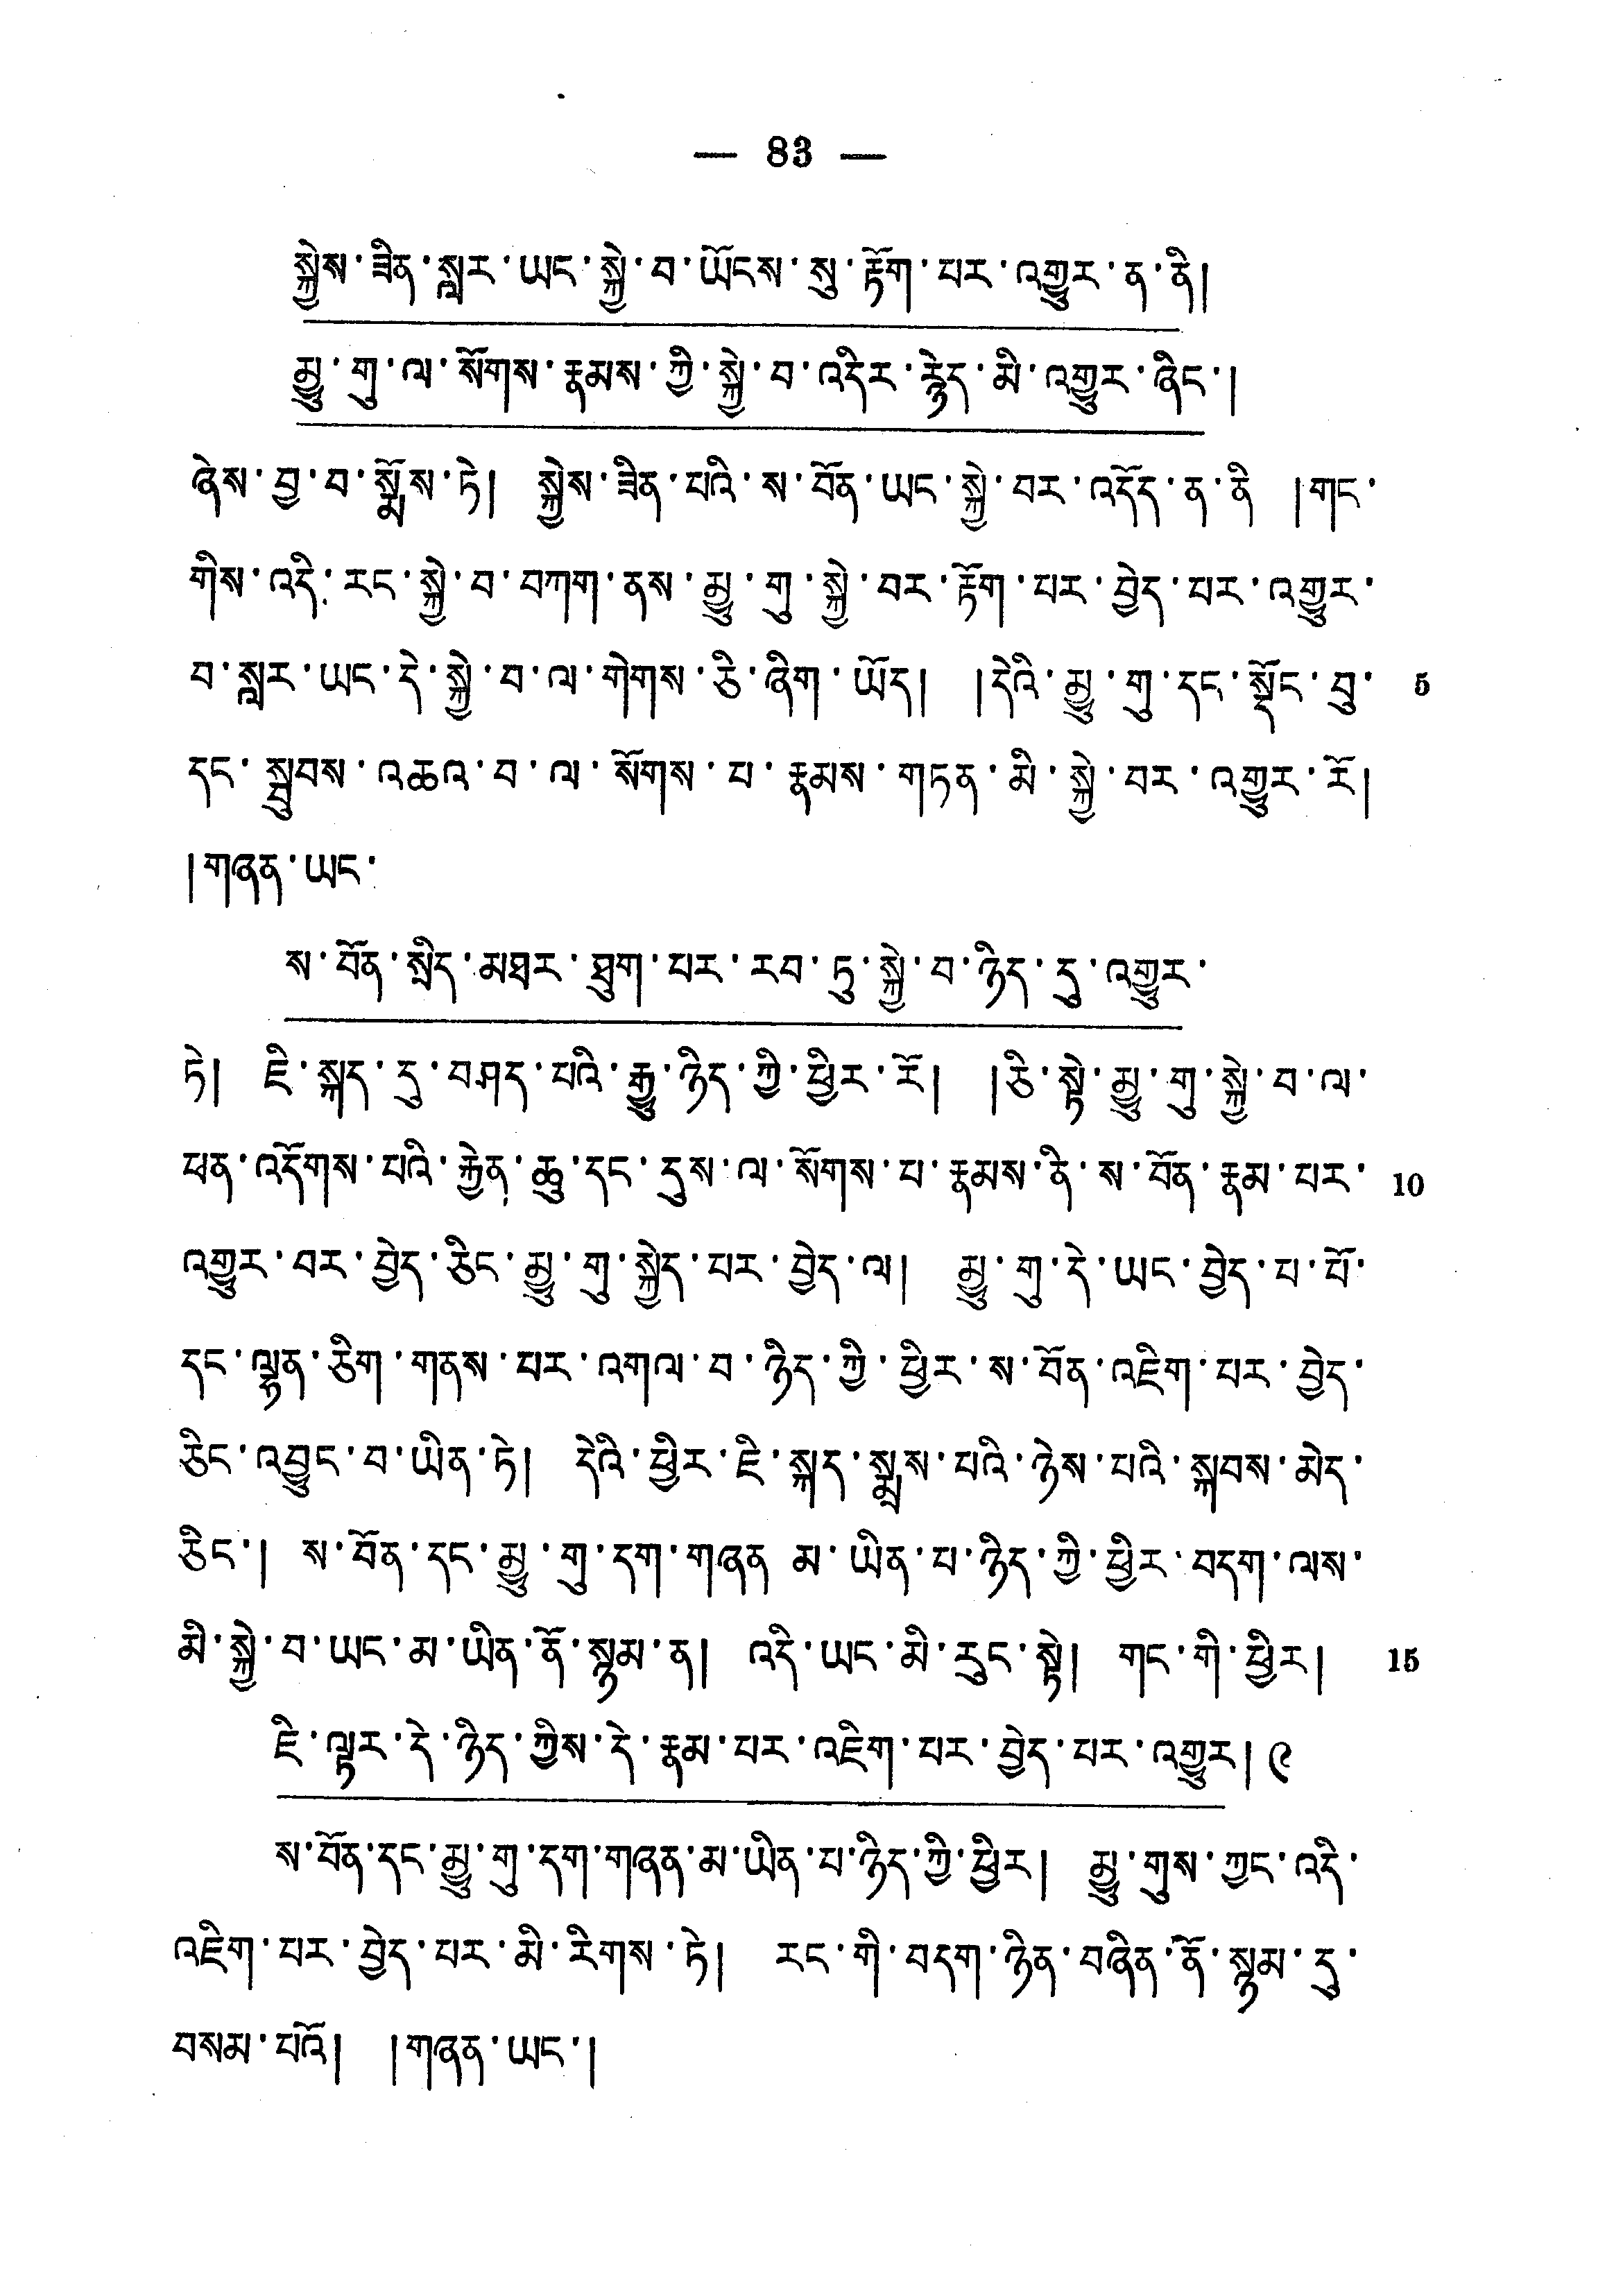 — 83 —
སྐྱེས་ཟིན་སླར་ཡང་སྐྱེ་བ་ཡོངས་སུ་རྟོག་པར་འགྱུར་ན་ནི།
མྱུ་གུ་ལ་སོགས་རྣམས་ཀྱི་སྐྱེ་བ་འདིར་རྙེད་མི་འགྱུར་ཞིང་།
ཞེས་བྱ་བ་སྨོས་ཏེ། སྐྱེས་ཟིན་པའི་ས་བོན་ཡང་སྐྱེ་བར་འདོད་ན་ནི །གང་
གིས་འདི་རང་སྐྱེ་བ་བཀག་ནས་མྱུ་གུ་སྐྱེ་བར་རྟོག་པར་བྱེད་པར་འགྱུར་
བ་སླར་ཡང་དེ་སྐྱེ་བ་ལ་གེགས་ཅི་ཞིག་ཡོད། །དེའི་མྱུ་གུ་དང་སྡོང་བུ་ 5
དང་སྦུབས་འཆའ་བ་ལ་སོགས་པ་རྣམས་གཏན་མི་སྐྱེ་བར་འགྱུར་རོ།
།གཞན་ཡང་
ས་བོན་སྲིད་མཐར་ཐུག་པར་རབ་ཏུ་སྐྱེ་བ་ཉིད་དུ་འགྱུར་
ཏེ། ཇི་སྐད་དུ་བཤད་པའི་རྒྱུ་ཉིད་ཀྱི་ཕྱིར་རོ། །ཅི་སྟེ་མྱུ་གུ་སྐྱེ་བ་ལ་
ཕན་འདོགས་པའི་རྐྱེན་ཆུ་དང་དུས་ལ་སོགས་པ་རྣམས་ནི་ས་བོན་རྣམ་པར་ 10
འགྱུར་བར་བྱེད་ཅིང་མྱུ་གུ་སྐྱེད་པར་བྱེད་ལ། མྱུ་གུ་དེ་ཡང་བྱེད་པ་པོ་
དང་ལྷན་ཅིག་གནས་པར་འགལ་བ་ཉིད་ཀྱི་ཕྱིར་ས་བོན་འཇིག་པར་བྱེད་
ཅིང་འབྱུང་བ་ཡིན་ཏེ། དེའི་ཕྱིར་ཇི་སྐད་སྨྲས་པའི་ཉེས་པའི་སྐབས་མེད་
ཅིང་། ས་བོན་དང་མྱུ་གུ་དག་གཞན མ་ཡིན་པ་ཉིད་ཀྱི་ཕྱིར་བདག་ལས་
མི་སྐྱེ་བ་ཡང་མ་ཡིན་ནོ་སྙམ་ན། འདི་ཡང་མི་རུང་སྟེ། གང་གི་ཕྱིར། 15
ཇི་ལྟར་དེ་ཉིད་ཀྱིས་དེ་རྣམ་པར་འཇིག་པར་བྱེད་པར་འགྱུར། ༩
ས་བོན་དང་མྱུ་གུ་དག་གཞན་མ་ཡིན་པ་ཉིད་ཀྱི་ཕྱིར། མྱུ་གུས་ཀྱང་འདི་
འཇིག་པར་བྱེད་པར་མི་རིགས་ཏེ། རང་གི་བདག་ཉིན་བཞིན་ནོ་སྙམ་དུ་
བསམ་པའོ། །གཞན་ཡང་།